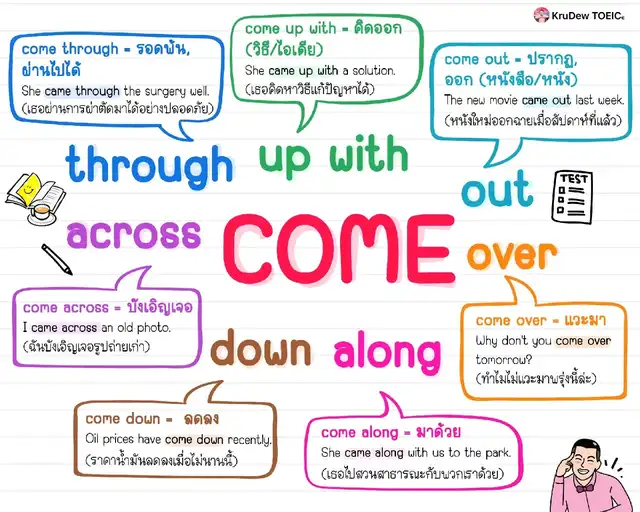 KruDew TOEIC
come through = รอดพ้น,
ผ่านไปได้
She came through the surgery well.
(เธอผ่านการผ่าตัดมาได้อย่างปลอดภัย)
come up with = คิดออก
(วิธี/ไอเดีย)
She came up with a solution.
(เธอคิดหาวิธีแก้ปัญหาได้)
come out = ปรากฏ,
ออก (หนังสือ/หนัง)
The new movie came out last week.
(หนังใหม่ออกฉายเมื่อสัปดาห์ที่แล้ว)
through
up with
out
TEST
across
COME
over
come across = บังเอิญเจอ
I came across an old photo.
(ฉันบังเอิญเจอรูปถ่ายเก่า)
come over = แวะมา
Why don't you come over
tomorrow?
(ทำไมไม่แวะมาพรุ่งนี้ล่ะ)
down
along
come down = ลดลง
Oil prices have come down recently.
(ราคาน้ำมันลดลงเมื่อไม่นานนี้)
come along = มาด้วย
She came along with us to the park.
(เธอไปสวนสาธารณะกับพวกเราด้วย)